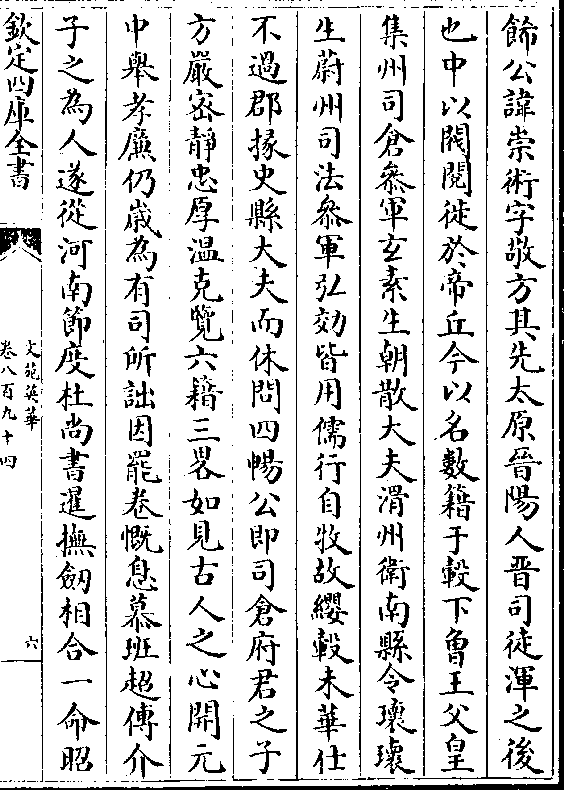 飾公諱崇術字敬方其先太原晉陽人晋司徒渾之後
也中以閥閱徙於帝丘今以名數籍于轂下曾王父皇
集州司倉叅軍玄素生朝散大夫渭州衛南縣令瓌瓌
生蔚州司法叅軍弘効皆用儒行自牧故纓轂未華仕
不過郡掾史縣大夫而休問四暢公即司倉府君之子
方嚴密靜忠厚温克覽六籍三畧如見古人之心開元
中舉孝廉仍歲為有司所詘因罷卷慨息慕班超傅介
子之為人遂從河南節度杜尚書暹撫劒相合一命昭
欽定四庫全書
文苑英華
卷八百九十四
六